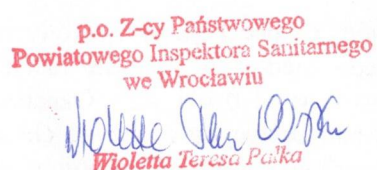 p.o. Z-cy Państwowego
Powiatowego Inspektora Sanitarnego
we Wrocławiu
Wioletta Teresa Pałka